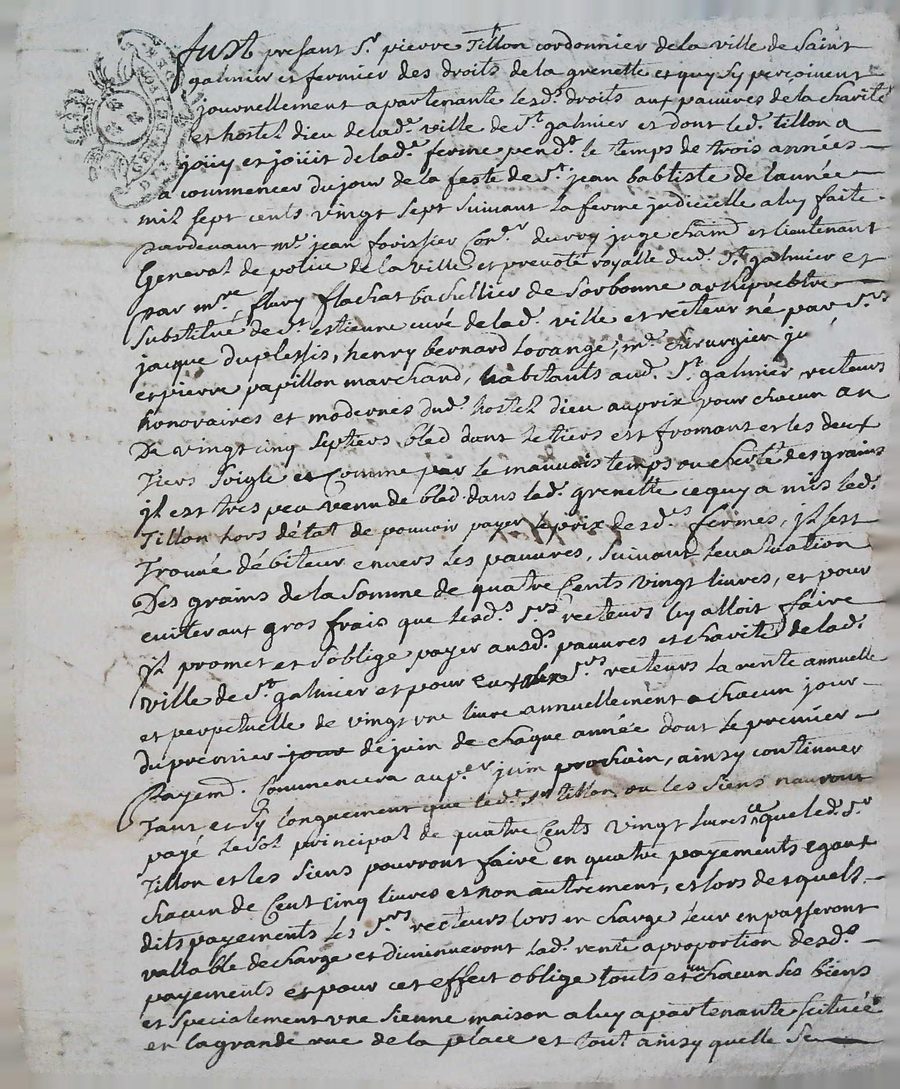 fust presant Sr pierre Tillon cordonnier de la ville de Saint
galmier et fermier des droits de la grenette et quy sy perçoivent
journellement apartenants lesds. droits aux pauvres de la charité
et hostel dieu de lade. ville de St galmier et dont led. tillon a
jouy et jouit de lade. ferme pendt. le temps de trois années
a commencer du jour de la feste de St. jean baptiste de l'année
mil sept cents vingt sept suivant la ferme judicielle a luy faite
pardevant me. jean forissier Coner. du roy juge chatd et lieutenant
General de police de la ville et prevote royalle dud. St galmier et
par mre flury flachat bachellier de Sorbonne archiprebtre
Substitué de St estienne curé de lad. ville et recteur né par Srs
jacque duplessis, henry bernard Lorange, me. chirurgien ju
et pierre papillon marchand, habitants aud. St galmier recteurs
honoraires et modernes dud. hostel dieu au prix pour chacun an
De vingt cinq Septiers bled dont le tiers est fromant et les deux
Tiers Soigle et Comme par le mauvais temps ou cherté des grains
il est tres peu venu de bled dans lad. grenette ce quy a mis led.
Tillon hors détat de pouvoir payer le prix desds fermes, Il sest
Trouvé débiteur envers les pauvres, suivant levaluation
Des grains de la Somme de quatre Cents vingt livres, et pour
eviter aux gros frais que lesds. Srs recteurs luy alloit faire
Il promet et s'oblige payer ausds. pauvres et charité de lad.
ville de St. galmier et pour eux Srs recteurs la rente annuelle
et perpetuelle de vingt une livre annuellement a chacun jour
du premier jour de juin de chaque année dont le premier
Payemt. Commencera au per juin prochain, ainsy continuer
Tant et Sy longuement que led. Sr tillon ou les Siens nauront
payé le Sol principal de quatre Cents vingt livres ce que led. Sr
Tillon et les Siens pourront faire en quatre payements egaux
chacun de Cent cinq livres et non autrement, et lors desquels
dits payements les Srs recteurs lors en charge leur en passeront
vallable decharge et diminueront lad. rente a proportion desds.
payements et pour cet effect oblige touts et un chacun ses biens
et specialement une sienne maison a luy apartenante scituée
en la grande rue de la place et tout ainsy quelle Se